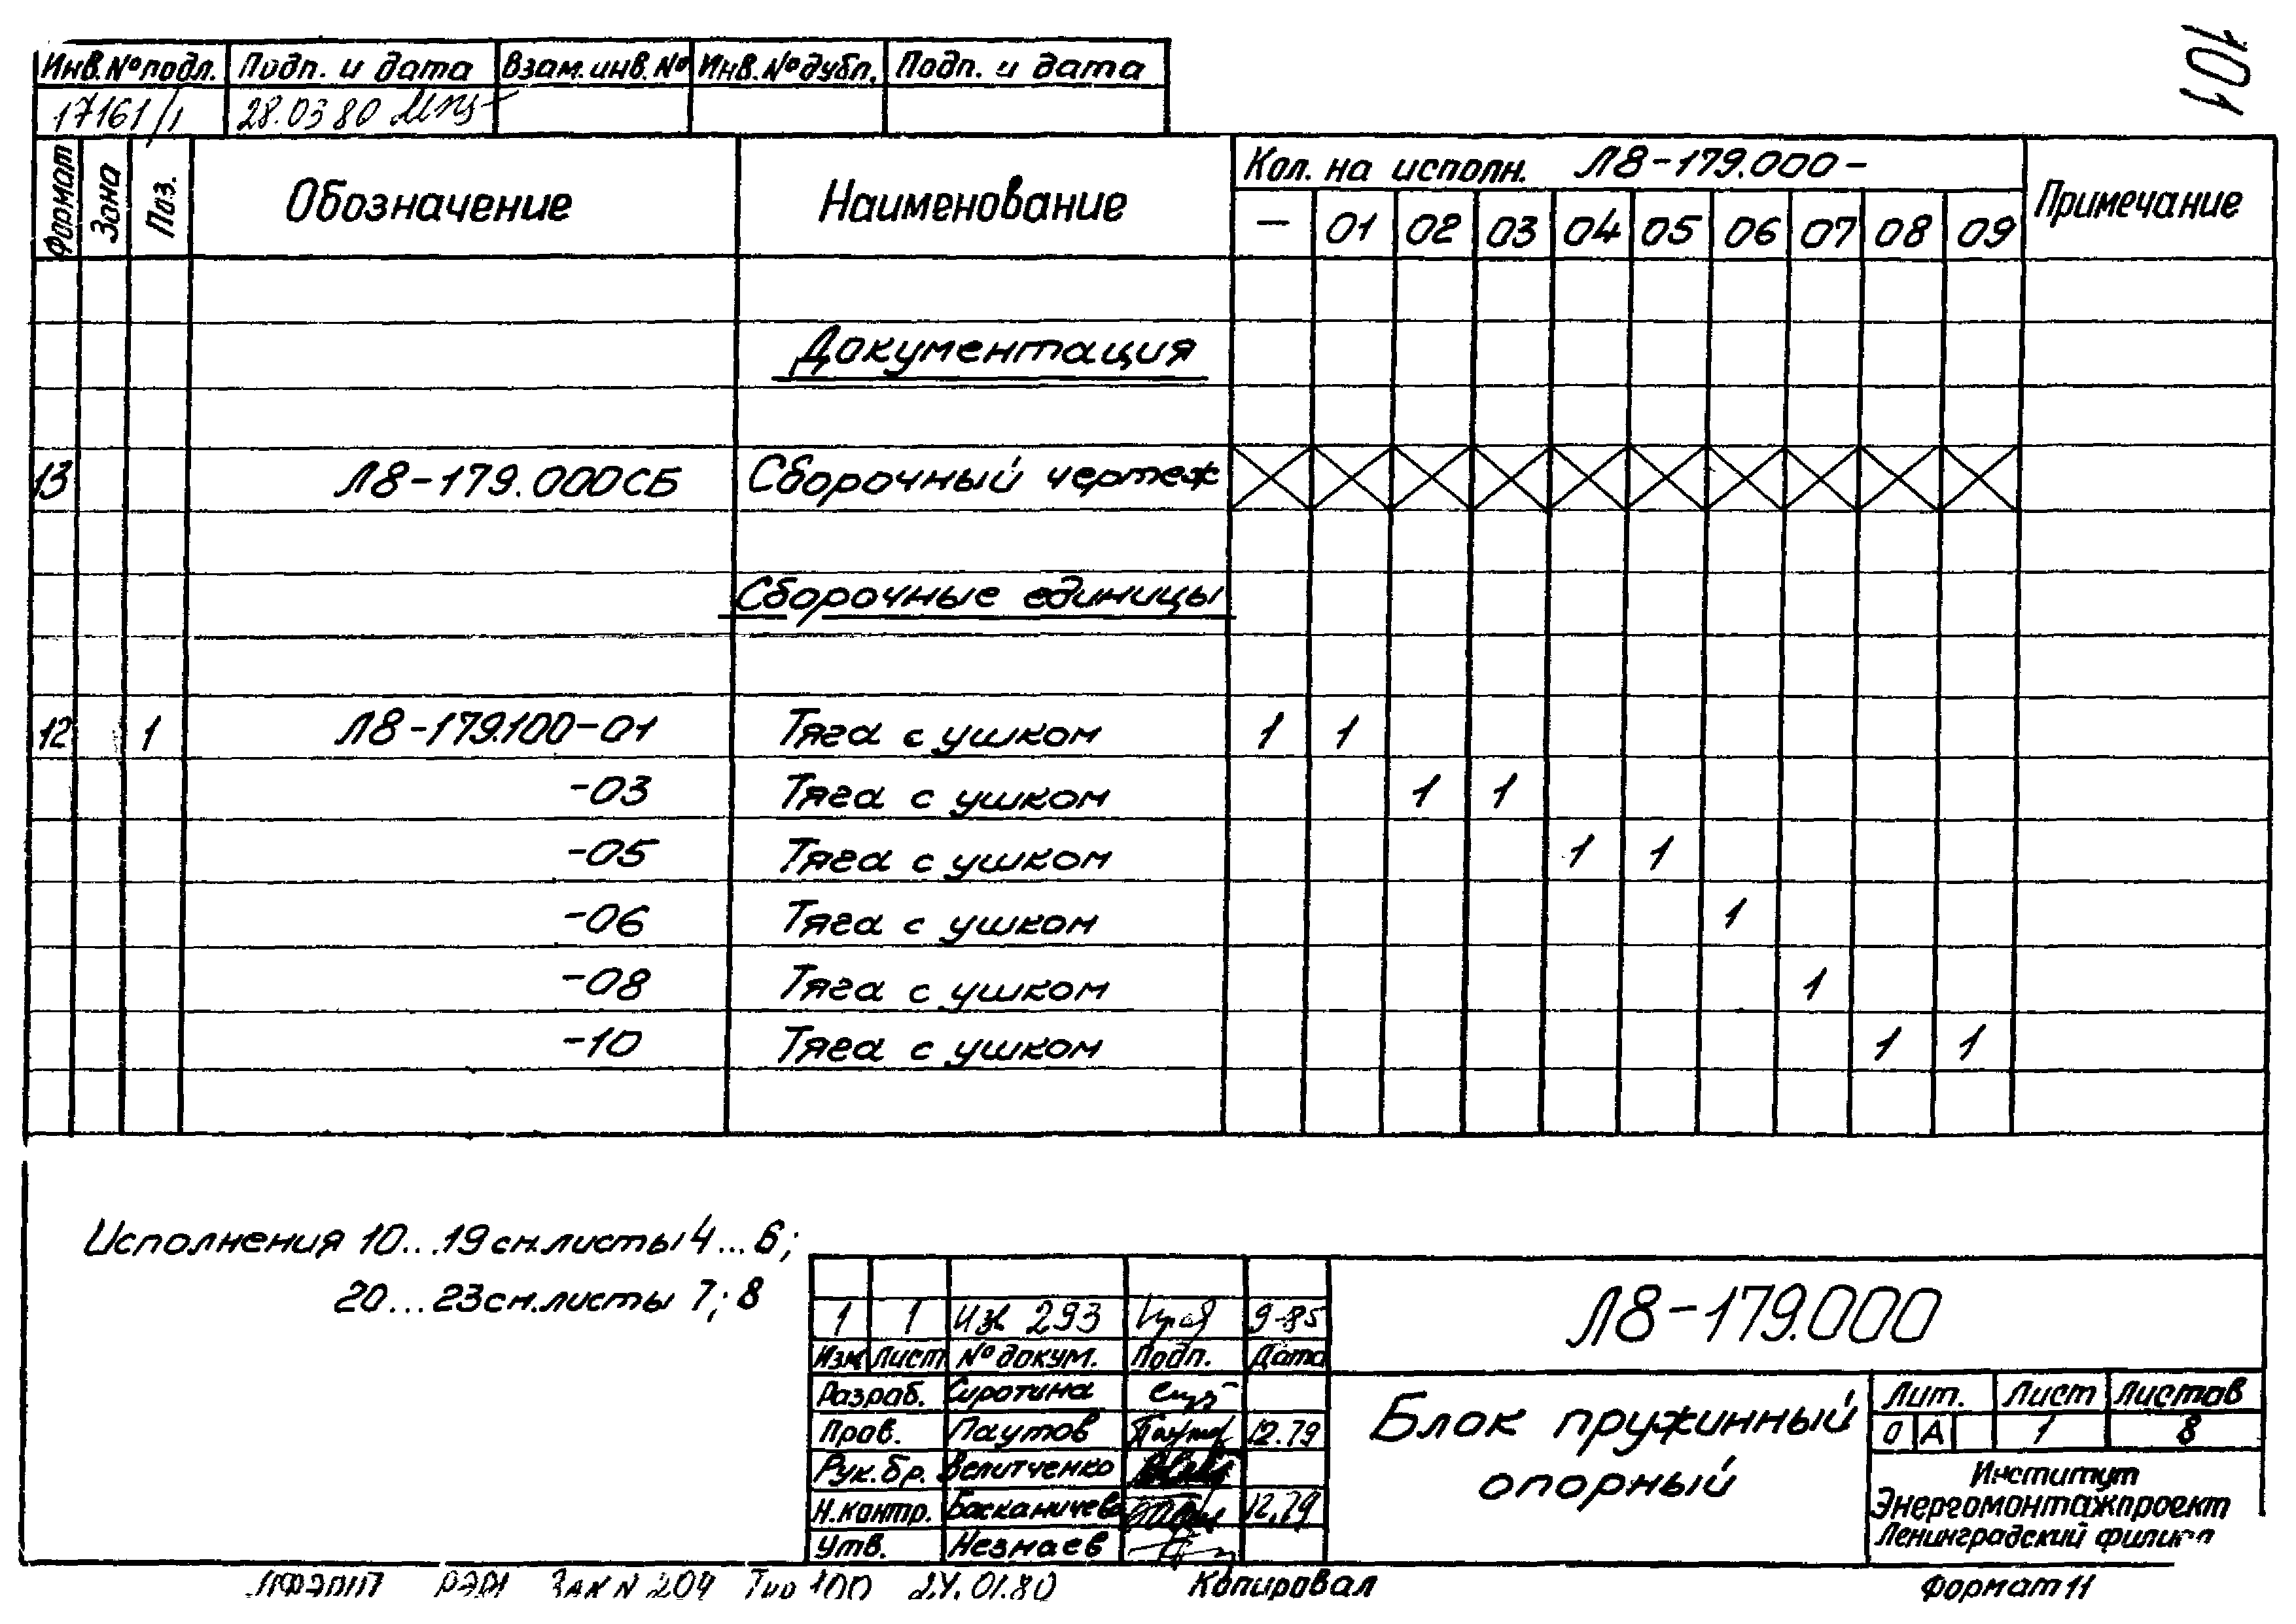 101
Инв.№подл. Подп. и дата Взам.инв.№ Инв.№дубл. Подп. и дата
17161/1 28.03 80
Формат Зона Поз. Обозначение Наименование Кол. на исполн. Л8-179.000- Примечание
— 01 02 03 04 05 06 07 08 09
Документация
13 Л8-179.000СБ Сборочный чертеж
Сборочные единицы
12 1 Л8-179.100-01 Тяга с ушком 1 1
-03 Тяга с ушком 1 1
-05 Тяга с ушком 1 1
-06 Тяга с ушком 1
-08 Тяга с ушком 1
-10 Тяга с ушком 1 1
Исполнения 10...19 см.листы 4...6;
20...23 см.листы 7; 8
1 1 Изв. 293 9-85
Изм Лист № докум. Подп. Дата
Разраб. Сиротина
Пров. Паутов 12.79
Рук.бр. Велитченко
Н.контр. Басканичева 12.79
Утв. Незнаев
Л8-179.000
Блок пружинный
опорный
Лит. Лист Листов
О А 1 8
Институт
Энергомонтажпроект
Ленинградский филиал
Зак N 204 Тир 100 24.01.80 Копировал Формат 11